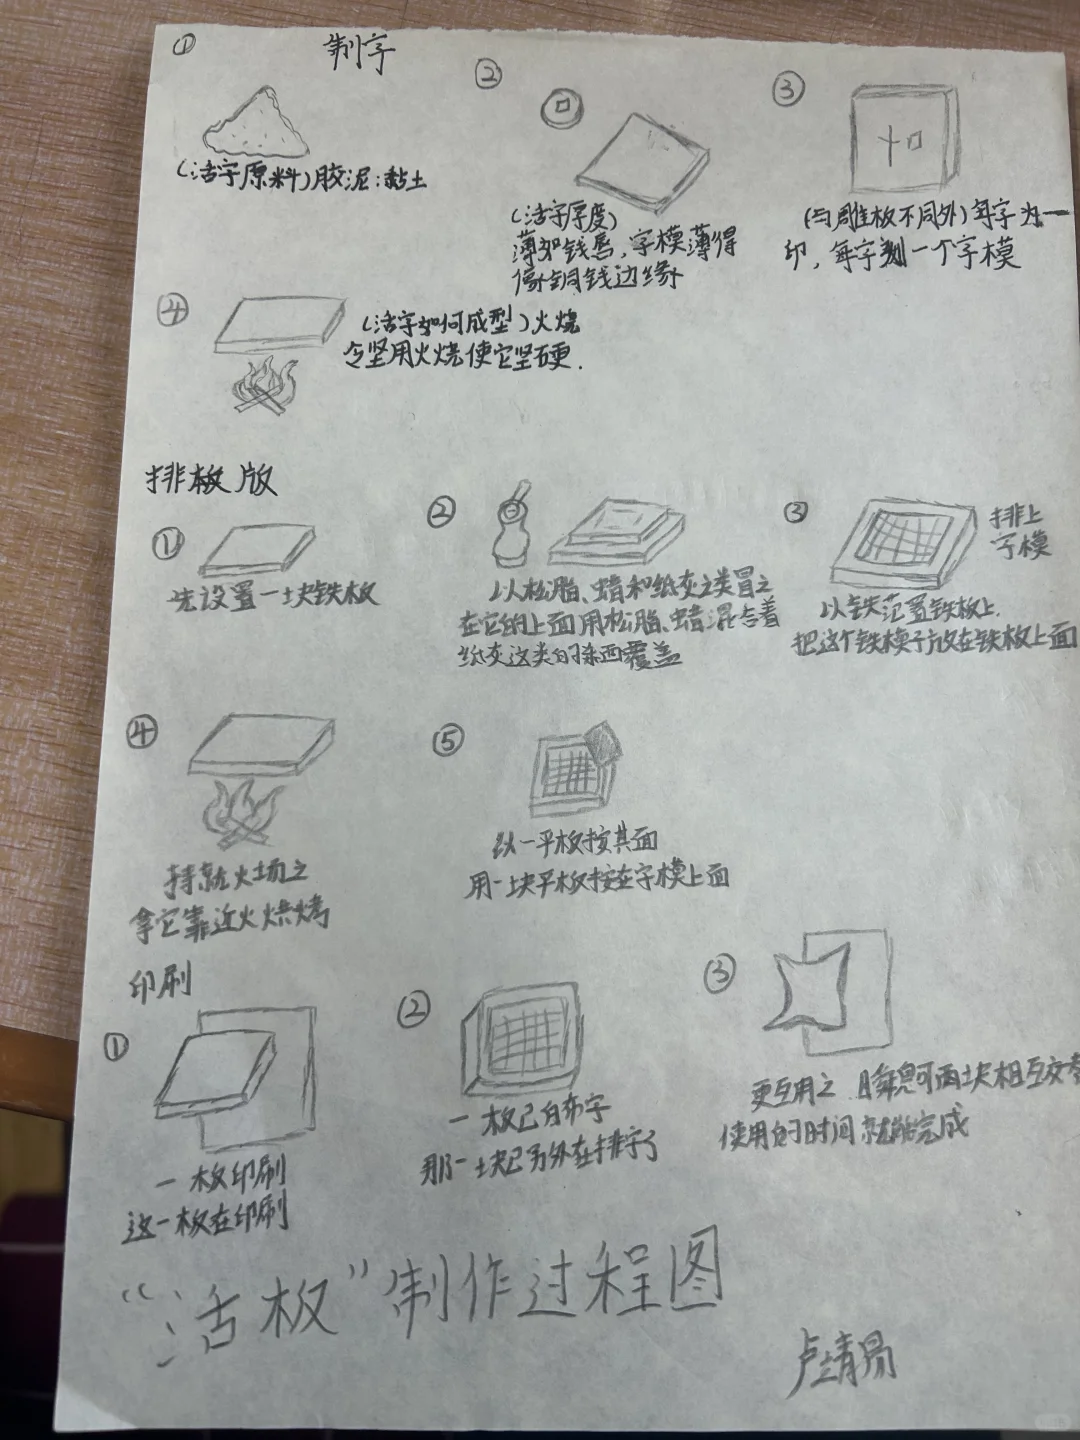 ① 制字
②
③
(活字原料)胶泥:黏土
(活字厚度)
薄如钱唇,字模薄得
像铜钱边缘
(与雕板不同外)每字为一
印,每字刻一个字模
④
(活字如何成型)火烧
令坚用火烧使它坚硬.
排板版
①
先设置一块铁板
②
以松脂、蜡和纸灰之类冒之
在它的上面用松脂、蜡混合着
纸灰这类的东西覆盖
③
排上
字模
以铁范置铁板上.
把这个铁模子放在铁板上面
④
持就火炀之
拿它靠近火烘烤
⑤
以一平板按其面
用一块平板按在字模上面
印刷
①
一板印刷
这一板在印刷
②
一板已自布字
那一块已另外在排字了
③
更互用之 瞬息可两块相互交替
使用的时间就能完成
“活板”制作过程图
卢靖